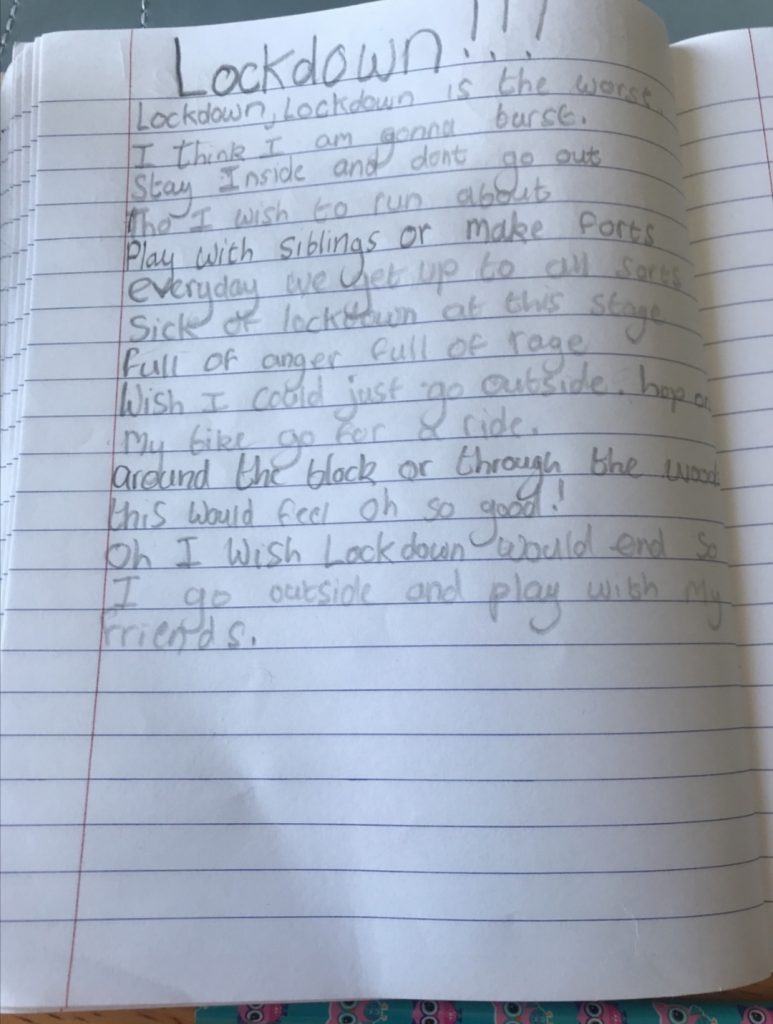 Lockdown!!!
Lockdown, Lockdown is the worst.
I think I am gonna burst.
Stay Inside and dont go out
tho I wish to run about
Play with siblings or make forts
everyday we get up to all sorts
Sick of lockdown at this stage
full of anger full of rage
Wish I could just go outside. hop on
My bike go for a ride.
around the block or through the wood
this would feel oh so good!
Oh I Wish Lockdown would end so
I go outside and play with my
friends.